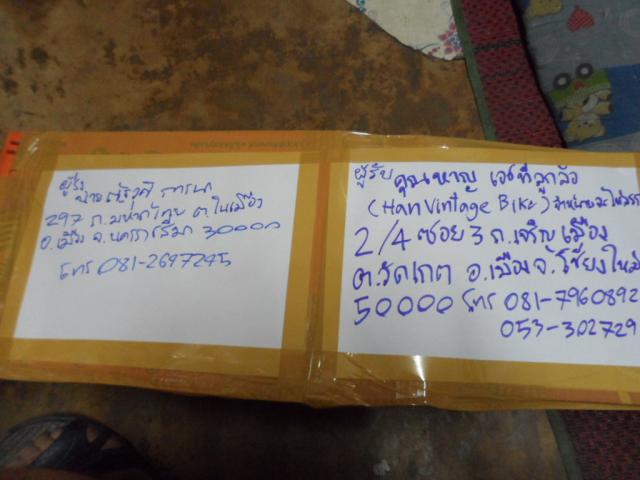 ผู้ส่ง
นาย
297 ถ.มหาดไทย ต.ในเมือง
อ.เมือง จ.นครราชสีมา 30000
โทร 081-2697245
ผู้รับ คุณหาญ เจดีย์ลูกลัว
(Han Vintage Bike)
2/4 ซอย 3 ถ.เจริญเมือง
ต.วัดเกต อ.เมือง จ.เชียงใหม่
50000 โทร 081-7960892
053-302729